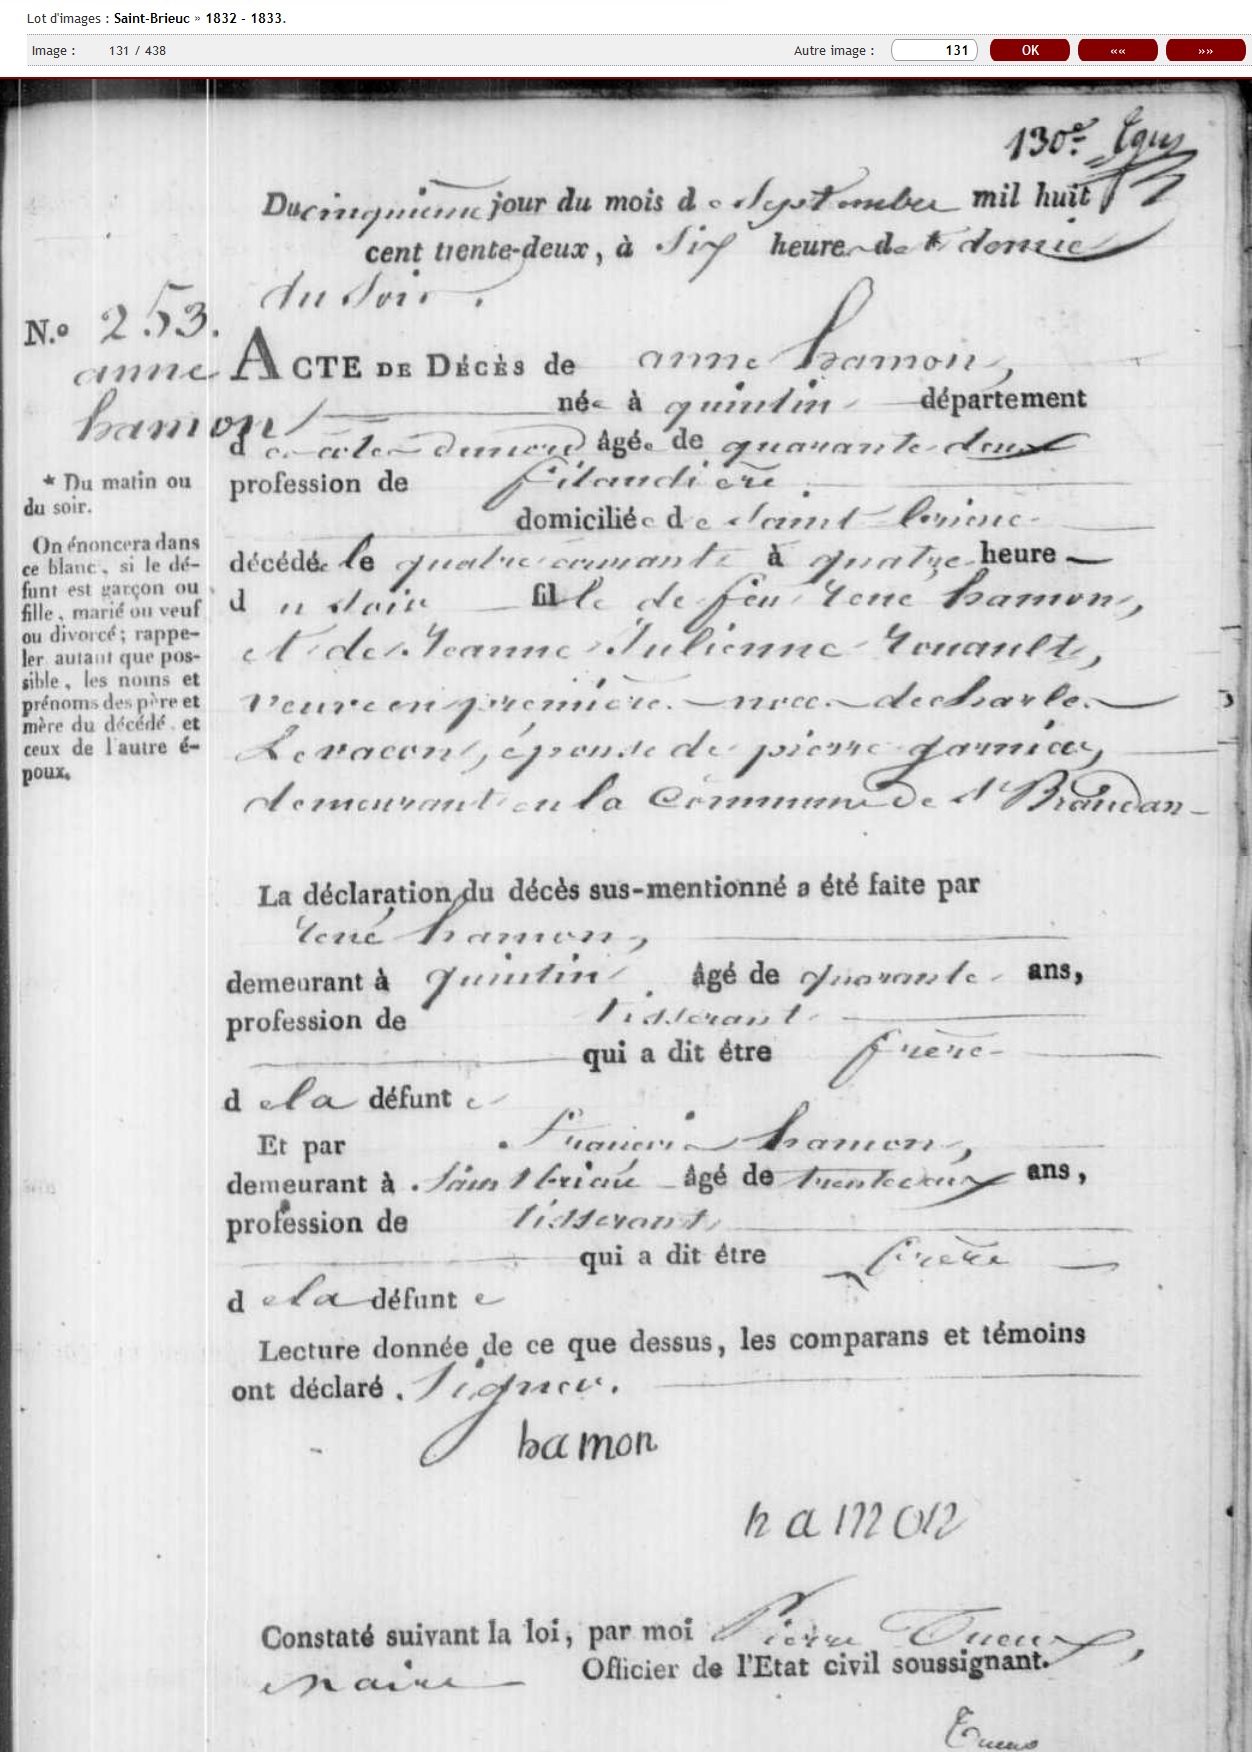 Lot d'images : Saint-Brieuc » 1832 - 1833.
Image : 131 / 438 Autre image : 131 OK «« »»
130e.
Du cinquième jour du mois de Septembre mil huit
cent trente-deux, à Six heure de * demie
du Soir.
N.o 253.
anne
hamon
* Du matin ou
du soir.
On énoncera dans
ce blanc, si le dé-
funt est garçon ou
fille, marié ou veuf
ou divorcé ; rappe-
ler autant que pos-
sible, les noms et
prénoms des père et
mère du décédé et
ceux de l'autre é-
poux.
ACTE DE DÉCÈS de anne hamon,
née à quintin département
des côtes du nord âgée de quarante deux
profession de filandière
domiciliée de Saint brieuc
décédée le quatre courant à quatre heure
du soir fille de feu rené hamon,
et de Jeanne Julienne rouault,
veuve en première noce de charle
Levacon, épouse de pierre garnier,
demeurant en la Commune de St Brandan
La déclaration du décès sus-mentionné a été faite par
rené hamon,
demeurant à quintin âgé de quarante ans,
profession de tisserant
qui a dit être frère
de la défunte
Et par François hamon,
demeurant à Saint brieuc âgé de trente deux ans,
profession de tisserant
qui a dit être frère
de la défunte
Lecture donnée de ce que dessus, les comparans et témoins
ont déclaré Signer.
hamon
hamon
Constaté suivant la loi, par moi Pierre Tueux,
maire Officier de l'Etat civil soussignant.